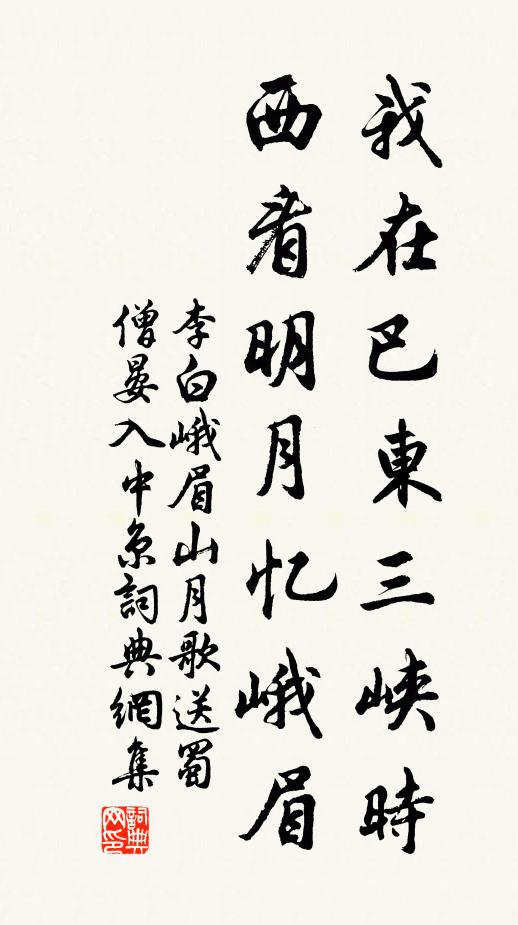 我在巴東三峽時
西看明月忆峨眉
李白峨眉山月歌送蜀
僧晏入中京詞典網集
詞典
网印